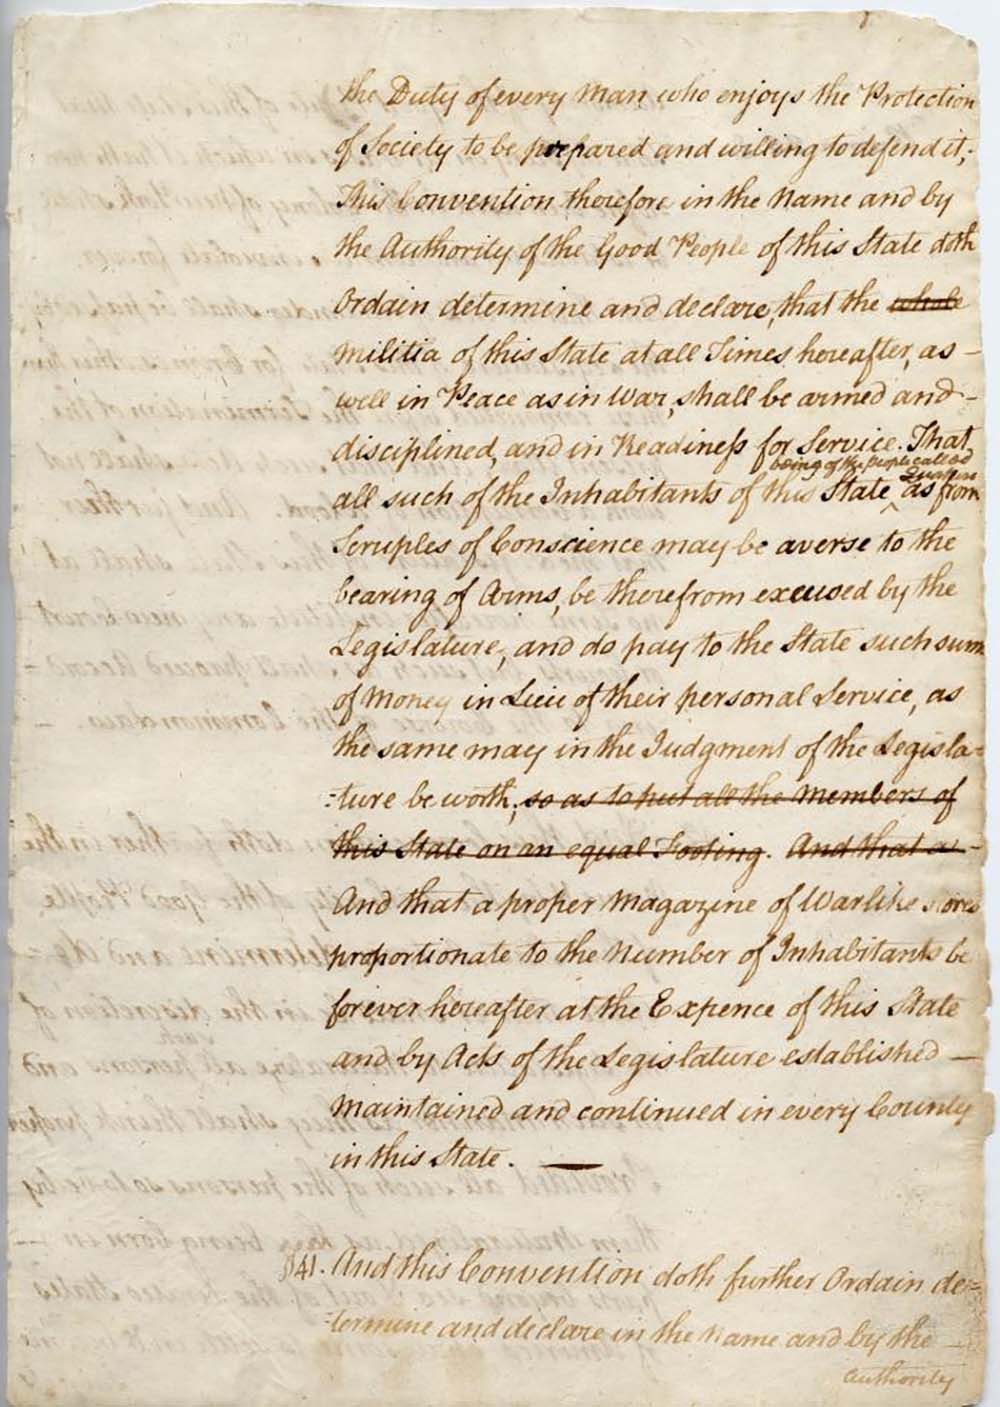 the Duty of every Man who enjoys the Protection
of Society to be prepared and willing to defend it;
This Convention therefore in the Name and by
the Authority of the Good People of this State doth
Ordain determine and declare, that the whole
militia of this State at all Times hereafter, as –
well in Peace as in War, shall be armed and –
disciplined, and in Readiness for Service. That
being of the people called Quakers
all such of the Inhabitants of this State ^ as from
Scruples of Conscience may be averse to the
bearing of Arms, be therefrom excused by the
Legislature, and do pay to the State such sum
of Money in Lieu of their personal Service, as
the same may in the Judgment of the Legisla=
=ture be worth; so as to put all the Members of
this State on an equal Footing. And that a
And that a proper Magazine of Warlike stores
proportionate to the Number of Inhabitants be
forever hereafter at the Expence of this State
and by Acts of the Legislature established —
maintained and continued in every County
in this State. —
§41. And this Convention doth further Ordain de=
=termine and declare in the Name and by the —
Authority